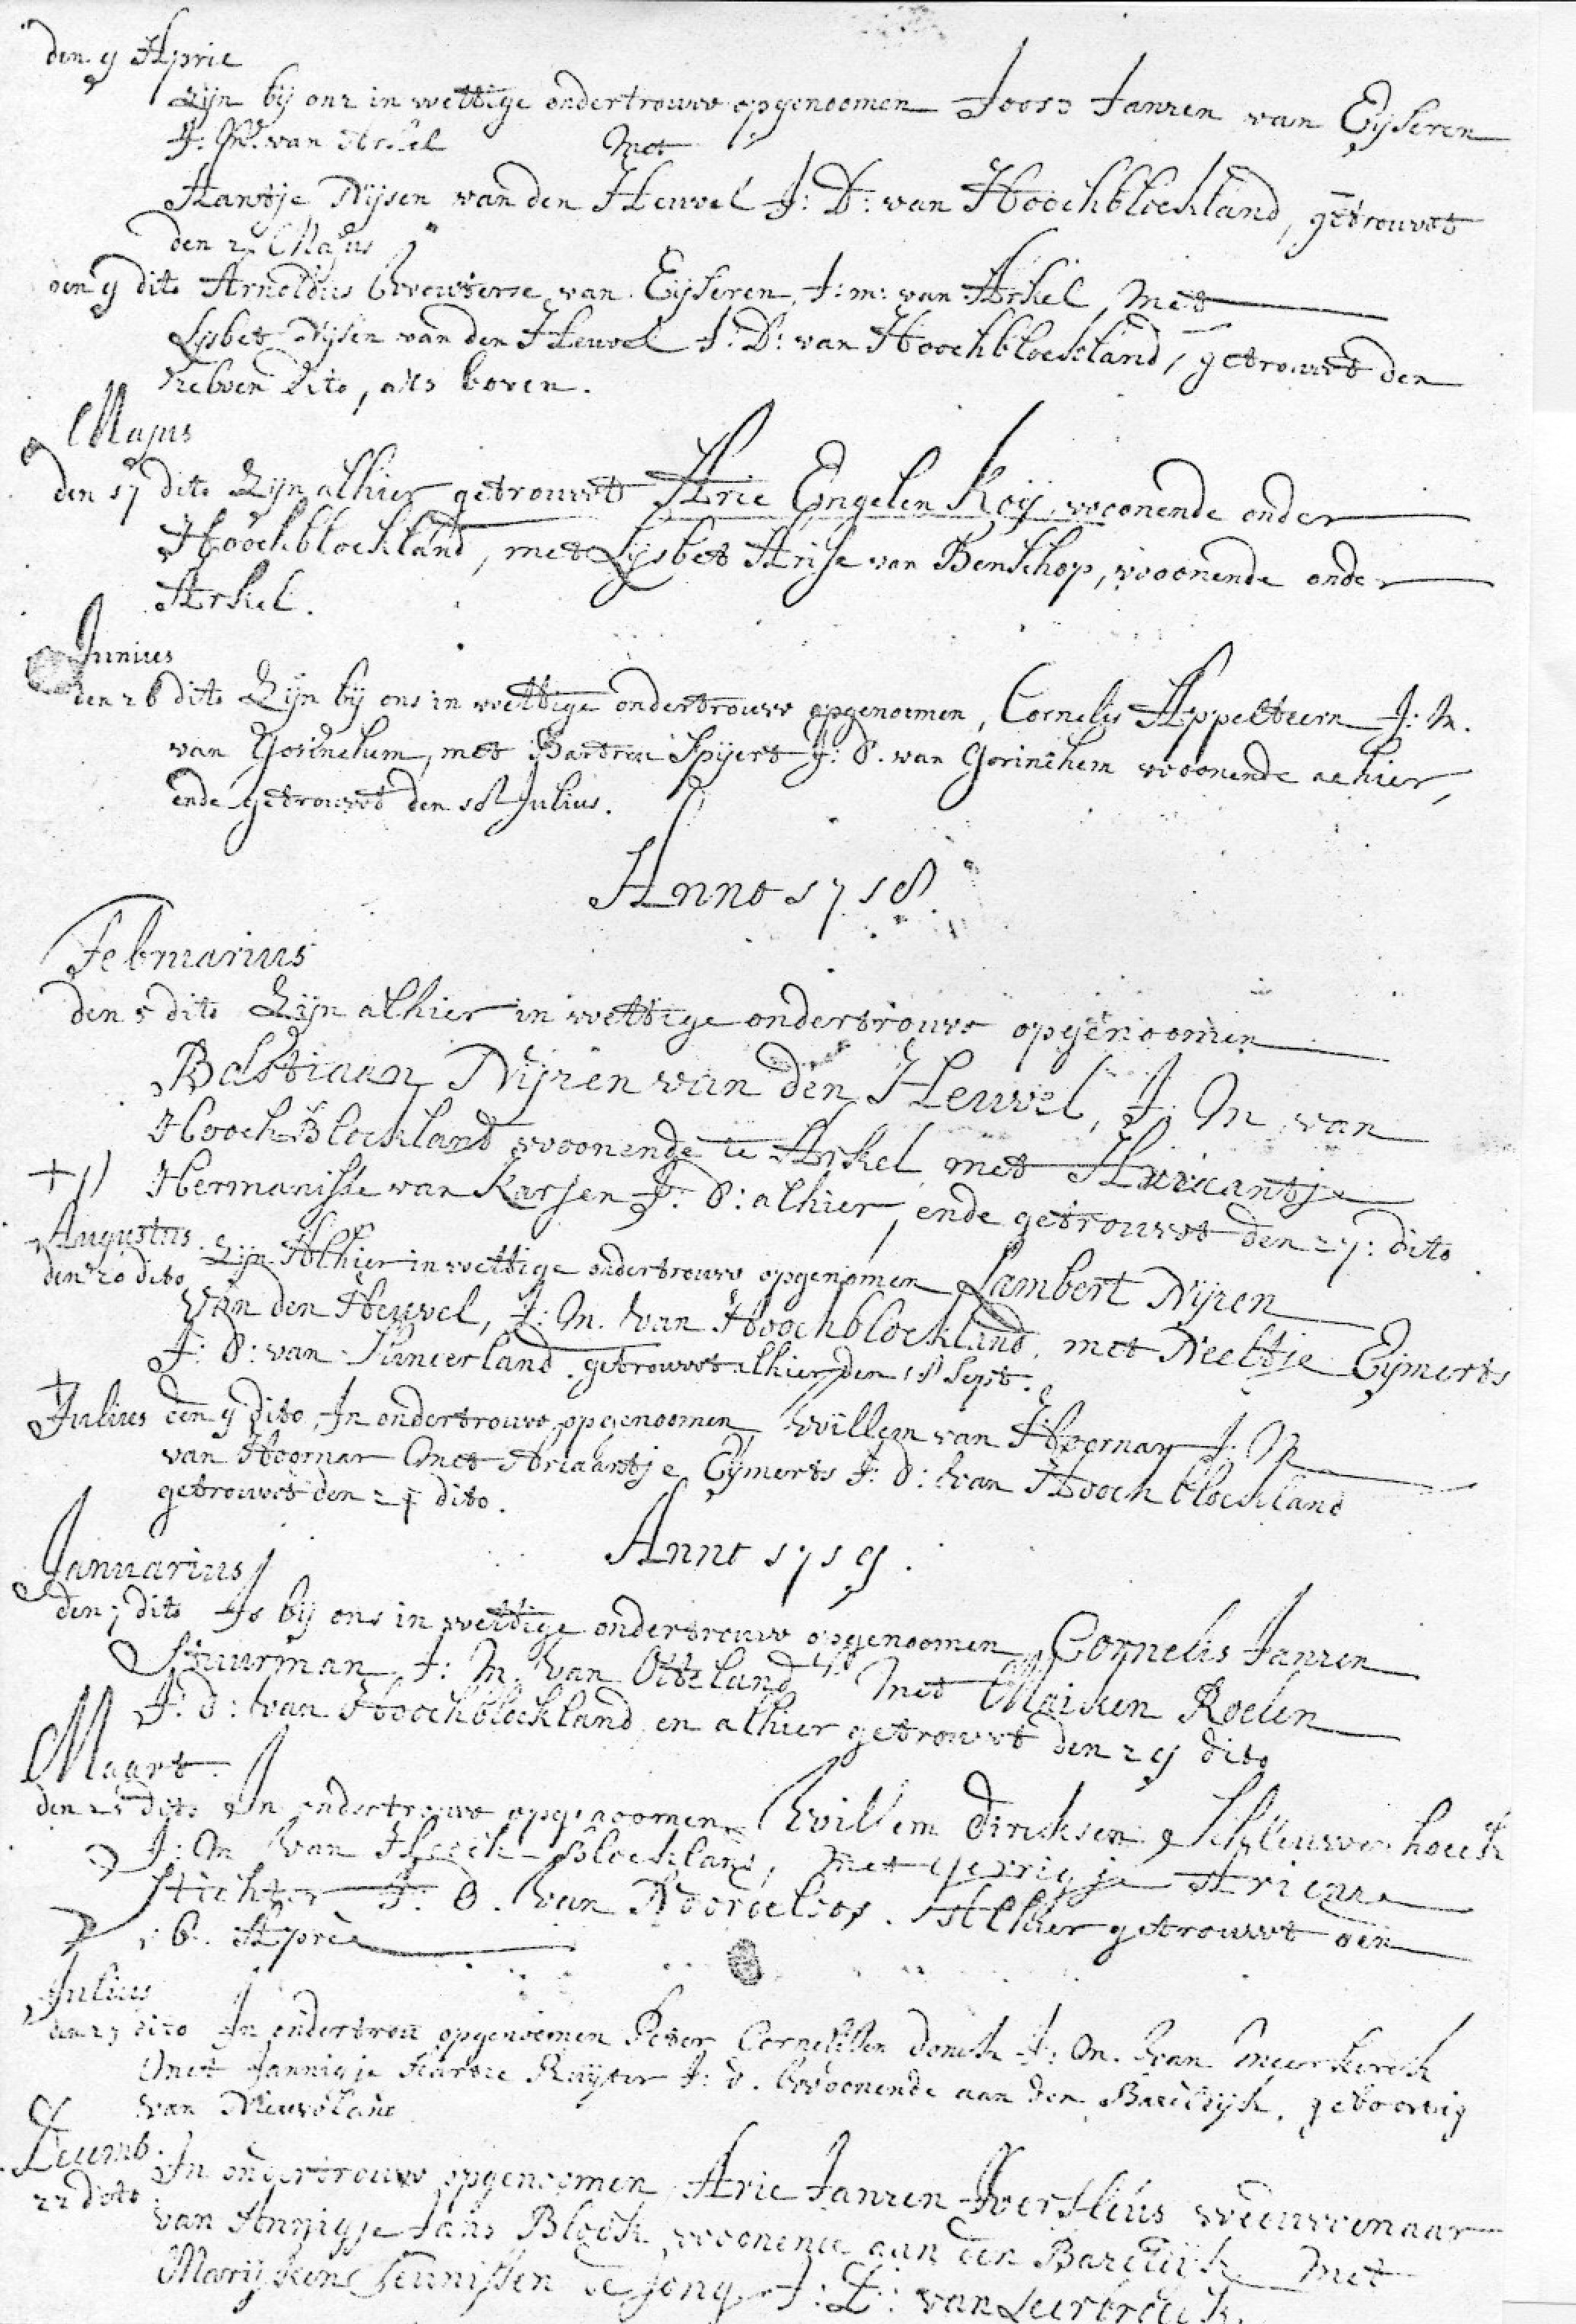 den 9 Aprie
Zijn bij ons in wettige ondertrouw opgenoomen Joost Janzen van Eijseren
J: M: van Arkel Met
Hantje Nijsen van den Heuvel J: D: van Hoochblockland, getrouwt
den Majus
den 9 dito Arnoldus van Eijseren, J: m: van Arkel, Met
Lijsbet Nijsen van den Heuvel J: D: van Hoochblockland, getrouwt den
zelven dito, als boven.
Majus
den 17 dito Zijn alhier getrouwt Arie Engelen Roij, woonende onder
Hoochblockland, met Lijsbet Arise van Benschop, woonende onder
Arkel.
Junius
den 26 dito Zijn bij ons in wettige ondertrouw opgenoemen, Cornelis Appelteern J: M.
van Gorinchem, met Spijert J: d. van Gorinchem woonende alhier,
ende getrouwt den 18 Julius.
Anno 1718
Februarius
den 5 dito Zijn alhier in wettige ondertrouw opgenoomen
Bastiaan Nijzen van den Heuvel, J. M van
Hooch Blockland woonende te Arkel met
Hermanisse van Karsen J: d: alhier, ende getrouwt den 27: dito
Augustus
den 20 dito Zijn Alhier in wettige ondertrouw opgenomen Lambert Nijzen
Van den Heuvel, J: M. van Hoochblockland, met Neeltje Eijmerts
J: d: van getrouwt alhier den 18 Sept.
Julius den 9 dito, In ondertrouw opgenoomen Willem van Hoornar J: M
van Hoornar Met Ariaantje Eijmerts J: d: van Hoochblockland
getrouwt den 24 dito.
Anno 1719.
Januarius
den 7 dito Is bij ons in wettige ondertrouw opgenoomen Cornelis Janzen
Stuurman J: M. van Otteland Met Maijken Roelen
J: d: van Hoochblockland en alhier getrouwt den 29 dito
Maart.
den 25 dito In ondertrouw opgenoomen Willem dircksen
J: M van Hooch-Blockland, met Arienze
Stichter J: d. van Noordeloos. Alhier getrouwt den
16. Apre
Julius
den 27 dito In ondertrou opgenoemen Peter Cornelissen donck J: M. van meerkerck
Met Jannigje Ruijter J: d. woonende aan den Bazeldijk, geboortig
van Nieuwland
Decemb.
22 dito In ondertrouw opgenoomen Arie Janzen Versluis weeuwenaar
van Annigje Jans Block, woonende aan den Bazeldijk Met
Marijken Teunissen de jong J: D: van Leerbroeck.